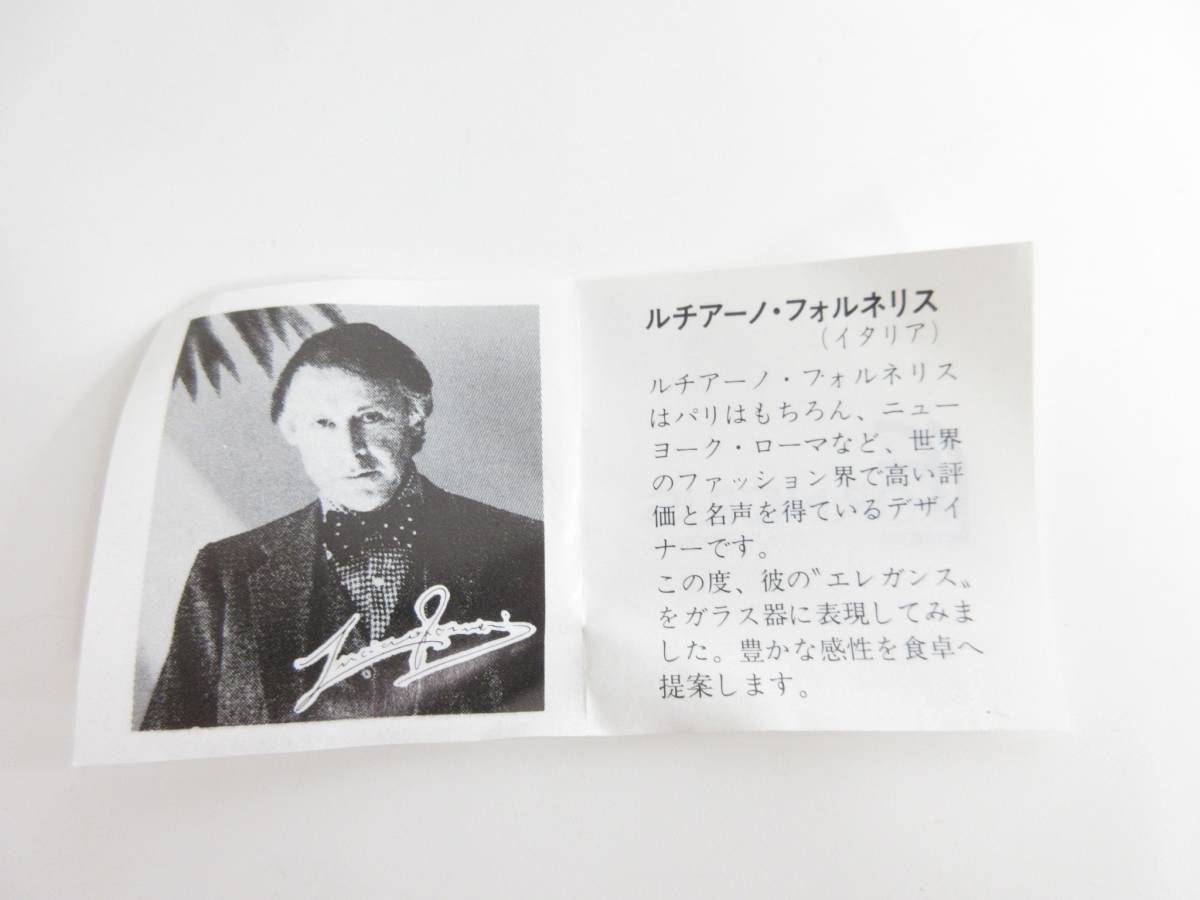 ルチアーノ・フォルネリス
(イタリア)
ルチアーノ・フォルネリス
はパリはもちろん、ニュー
ヨーク・ローマなど、世界
のファッション界で高い評
価と名声を得ているデザイ
ナーです。
この度、彼の〝エレガンス〟
をガラス器に表現してみま
した。豊かな感性を食卓へ
提案します。